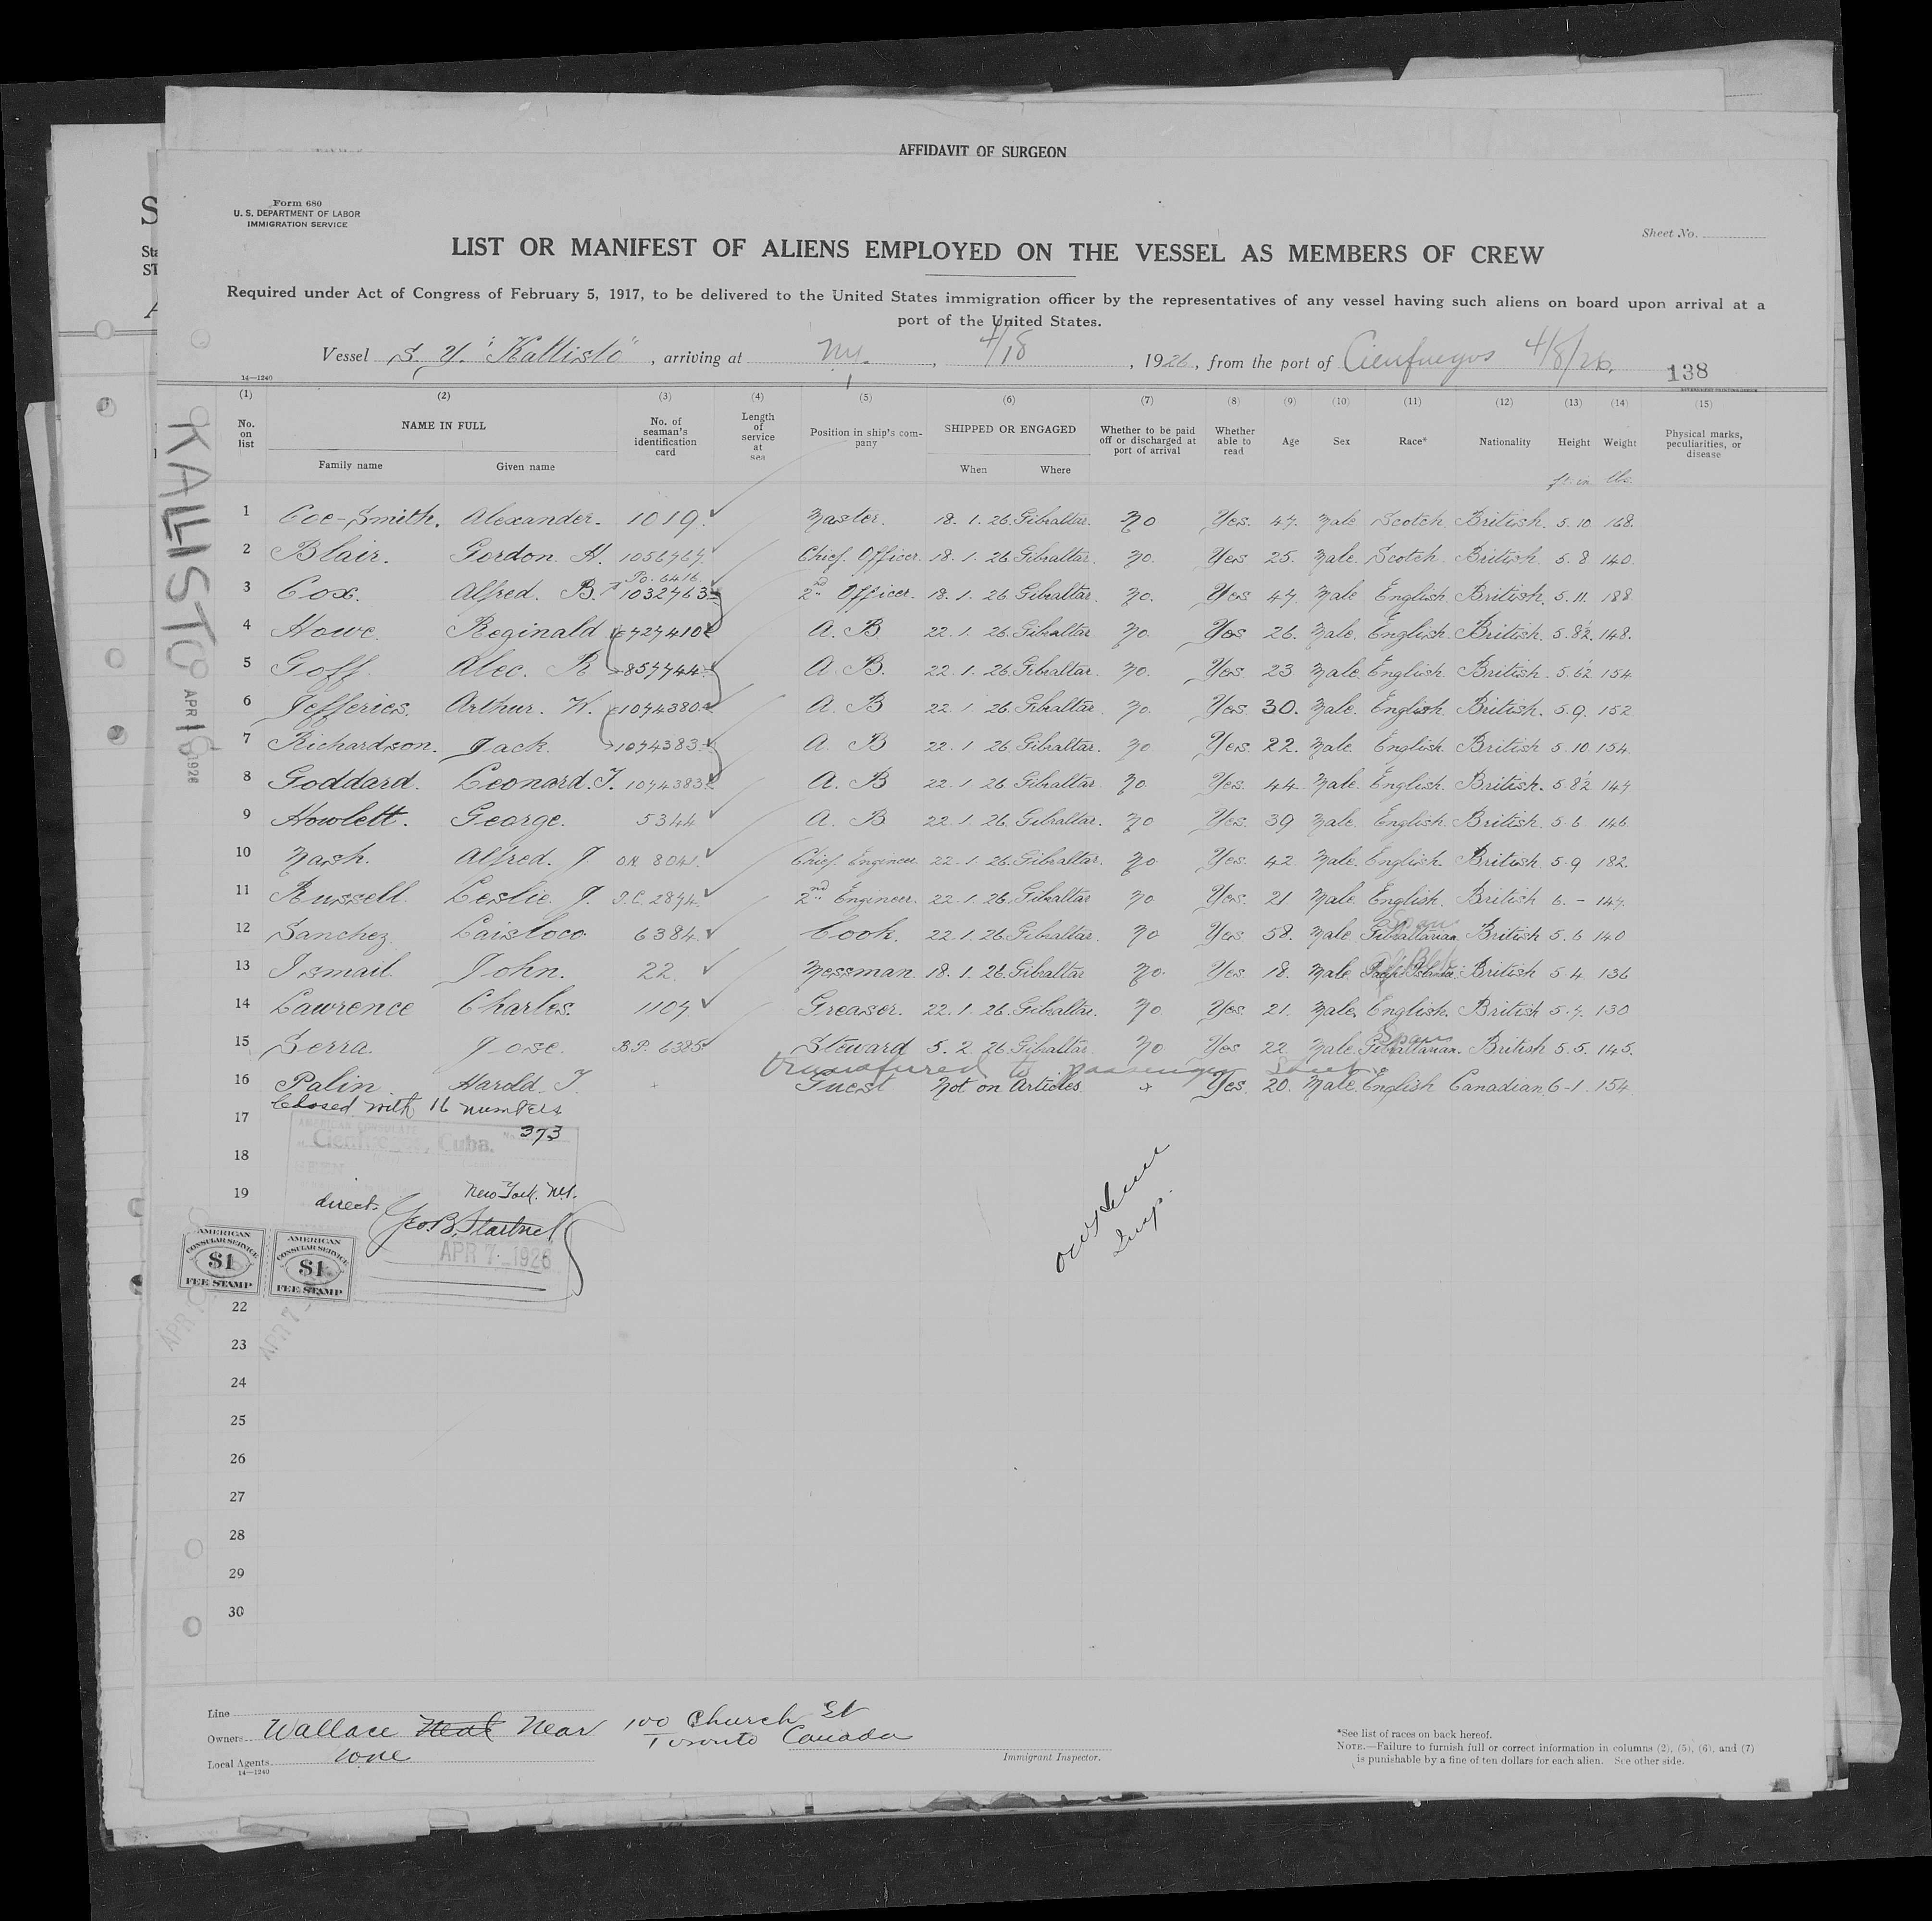 AFFIDAVIT OF SURGEON
Form 680
U. S. DEPARTMENT OF LABOR
IMMIGRATION SERVICE
Sheet No.
LIST OR MANIFEST OF ALIENS EMPLOYED ON THE VESSEL AS MEMBERS OF CREW
Required under Act of Congress of February 5, 1917, to be delivered to the United States immigration officer by the representatives of any vessel having such aliens on board upon arrival at a
port of the United States.
Vessel S. Y. "Kallisto", arriving at N.Y., 4/18, 1926, from the port of Cienfuegos 4/8/26.
138
14—1240
KALLISTO
APR 1926
(1) (2) (3) (4) (5) (6) (7) (8) (9) (10) (11) (12) (13) (14) (15)
No. on list
NAME IN FULL
Family name Given name
No. of seaman's identification card
Length of service at sea
Position in ship's company
SHIPPED OR ENGAGED
When Where
Whether to be paid off or discharged at port of arrival
Whether able to read
Age Sex Race* Nationality Height Weight
Physical marks, peculiarities, or disease
ft. in. lbs.
1 Coe-Smith. Alexander. 1019. Master. 18. 1. 26. Gibraltar. No Yes. 47. Male. Scotch British. 5. 10 168.
2 Blair. Gordon. H. 1056767. Chief Officer. 18. 1. 26. Gibraltar. No. Yes 25. Male. Scotch. British. 5. 8 140
Po. 6416.
3 Cox. Alfred. B. 1032763 2nd Officer. 18. 1. 26. Gibraltar. No. Yes 47. Male English British. 5. 11. 188
4 Howe. Reginald 727410 A. B. 22. 1. 26. Gibraltar No. Yes 26. Male. English. British. 5. 8½. 148.
5 Goff. Alec. R 857744 A. B. 22. 1. 26. Gibraltar. No. Yes. 23 Male. English. British. 5. 6½ 154
6 Jefferies. Arthur. W. 1074380 A. B 22. 1. 26. Gibraltar. No. Yes. 30. Male. English. British. 5. 9. 152
7 Richardson. Jack. 1074383. A. B 22. 1. 26. Gibraltar. No Yes. 22. Male. English. British 5. 10. 154
8 Goddard. Leonard. T. 1074383 A. B 22. 1. 26. Gibraltar No. Yes. 44 Male. English. British. 5. 8½ 147
9 Howlett. George. 5344 A. B 22. 1. 26. Gibraltar. No Yes. 39 Male. English. British. 5. 6 146
10 Nash. Alfred. J. ON 8041. Chief Engineer 22. 1. 26. Gibraltar. No Yes. 42 Male. English. British. 5. 9 182.
11 Russell. Leslie. J. 2874. 2nd Engineer. 22. 1. 26. Gibraltar No Yes. 21 Male. English. British 6. - 147.
12 Sanchez. 6384. Cook. 22. 1. 26. Gibraltar. No Yes 58. Male. Gibraltarian. British 5. 6 140
13 Ismail John. 22. Messman. 18. 1. 26. Gibraltar No. Yes 18. Male British 5. 4. 136
14 Lawrence Charles. 1107 Greaser. 22. 1. 26. Gibraltar. No Yes. 21. Male. English. British 5. 7. 130
15 Serra. Jose. B.P. 6385 Steward 5. 2. 26. Gibraltar. No Yes 22. Male. Gibraltarian. British 5. 5. 145.
to passenger
16 Palin Harold. T. Guest Not on Articles Yes. 20. Male. English Canadian 6-1. 154
Closed with 16 numbers
17
AMERICAN CONSULATE
Cienfuegos, Cuba.
No. 373
18
19
direct New York. N.Y.
APR 7 1926
AMERICAN CONSULAR SERVICE $1 FEE STAMP
AMERICAN CONSULAR SERVICE $1 FEE STAMP
APR 7
Insp.
22
23
24
25
26
27
28
29
30
Line
Owners Wallace Neal Near 100 Church St
Toronto Canada
Local Agents
14—1240
Immigrant Inspector.
*See list of races on back hereof.
NOTE.—Failure to furnish full or correct information in columns (2), (5), (6), and (7)
is punishable by a fine of ten dollars for each alien. See other side.